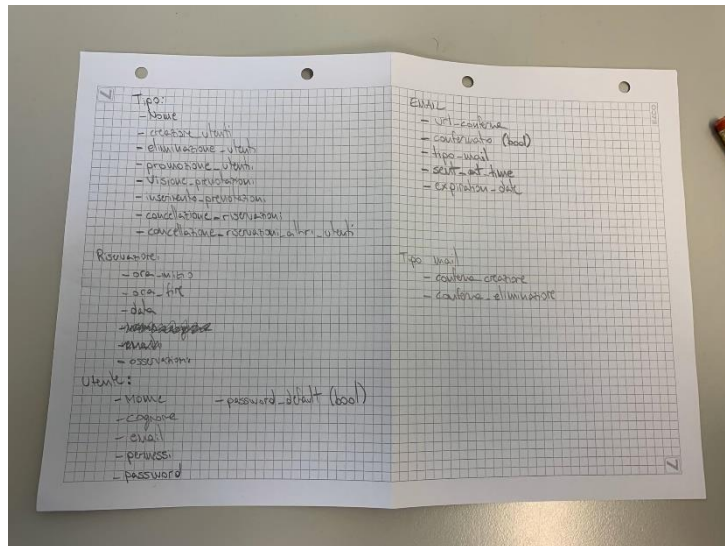 Tipo:
- Nome
- creazione_utenti
- eliminazione_utenti
- promozione_utenti
- visione_prenotazioni
- inserimento_prenotazioni
- cancellazione_riservazioni
- cancellazione_riservazioni_altri_utenti
Riservazione:
- ora_inizio
- ora_fine
- data
- email
- osservazioni
Utente:
- Nome
- password_default (bool)
- cognome
- email
- permessi
- password
EMAIL
- url_conferma
- confermato (bool)
- tipo-mail
- sent_at_time
- expiration_date
Tipo mail
- conferma_creazione
- conferma_eliminazione
7